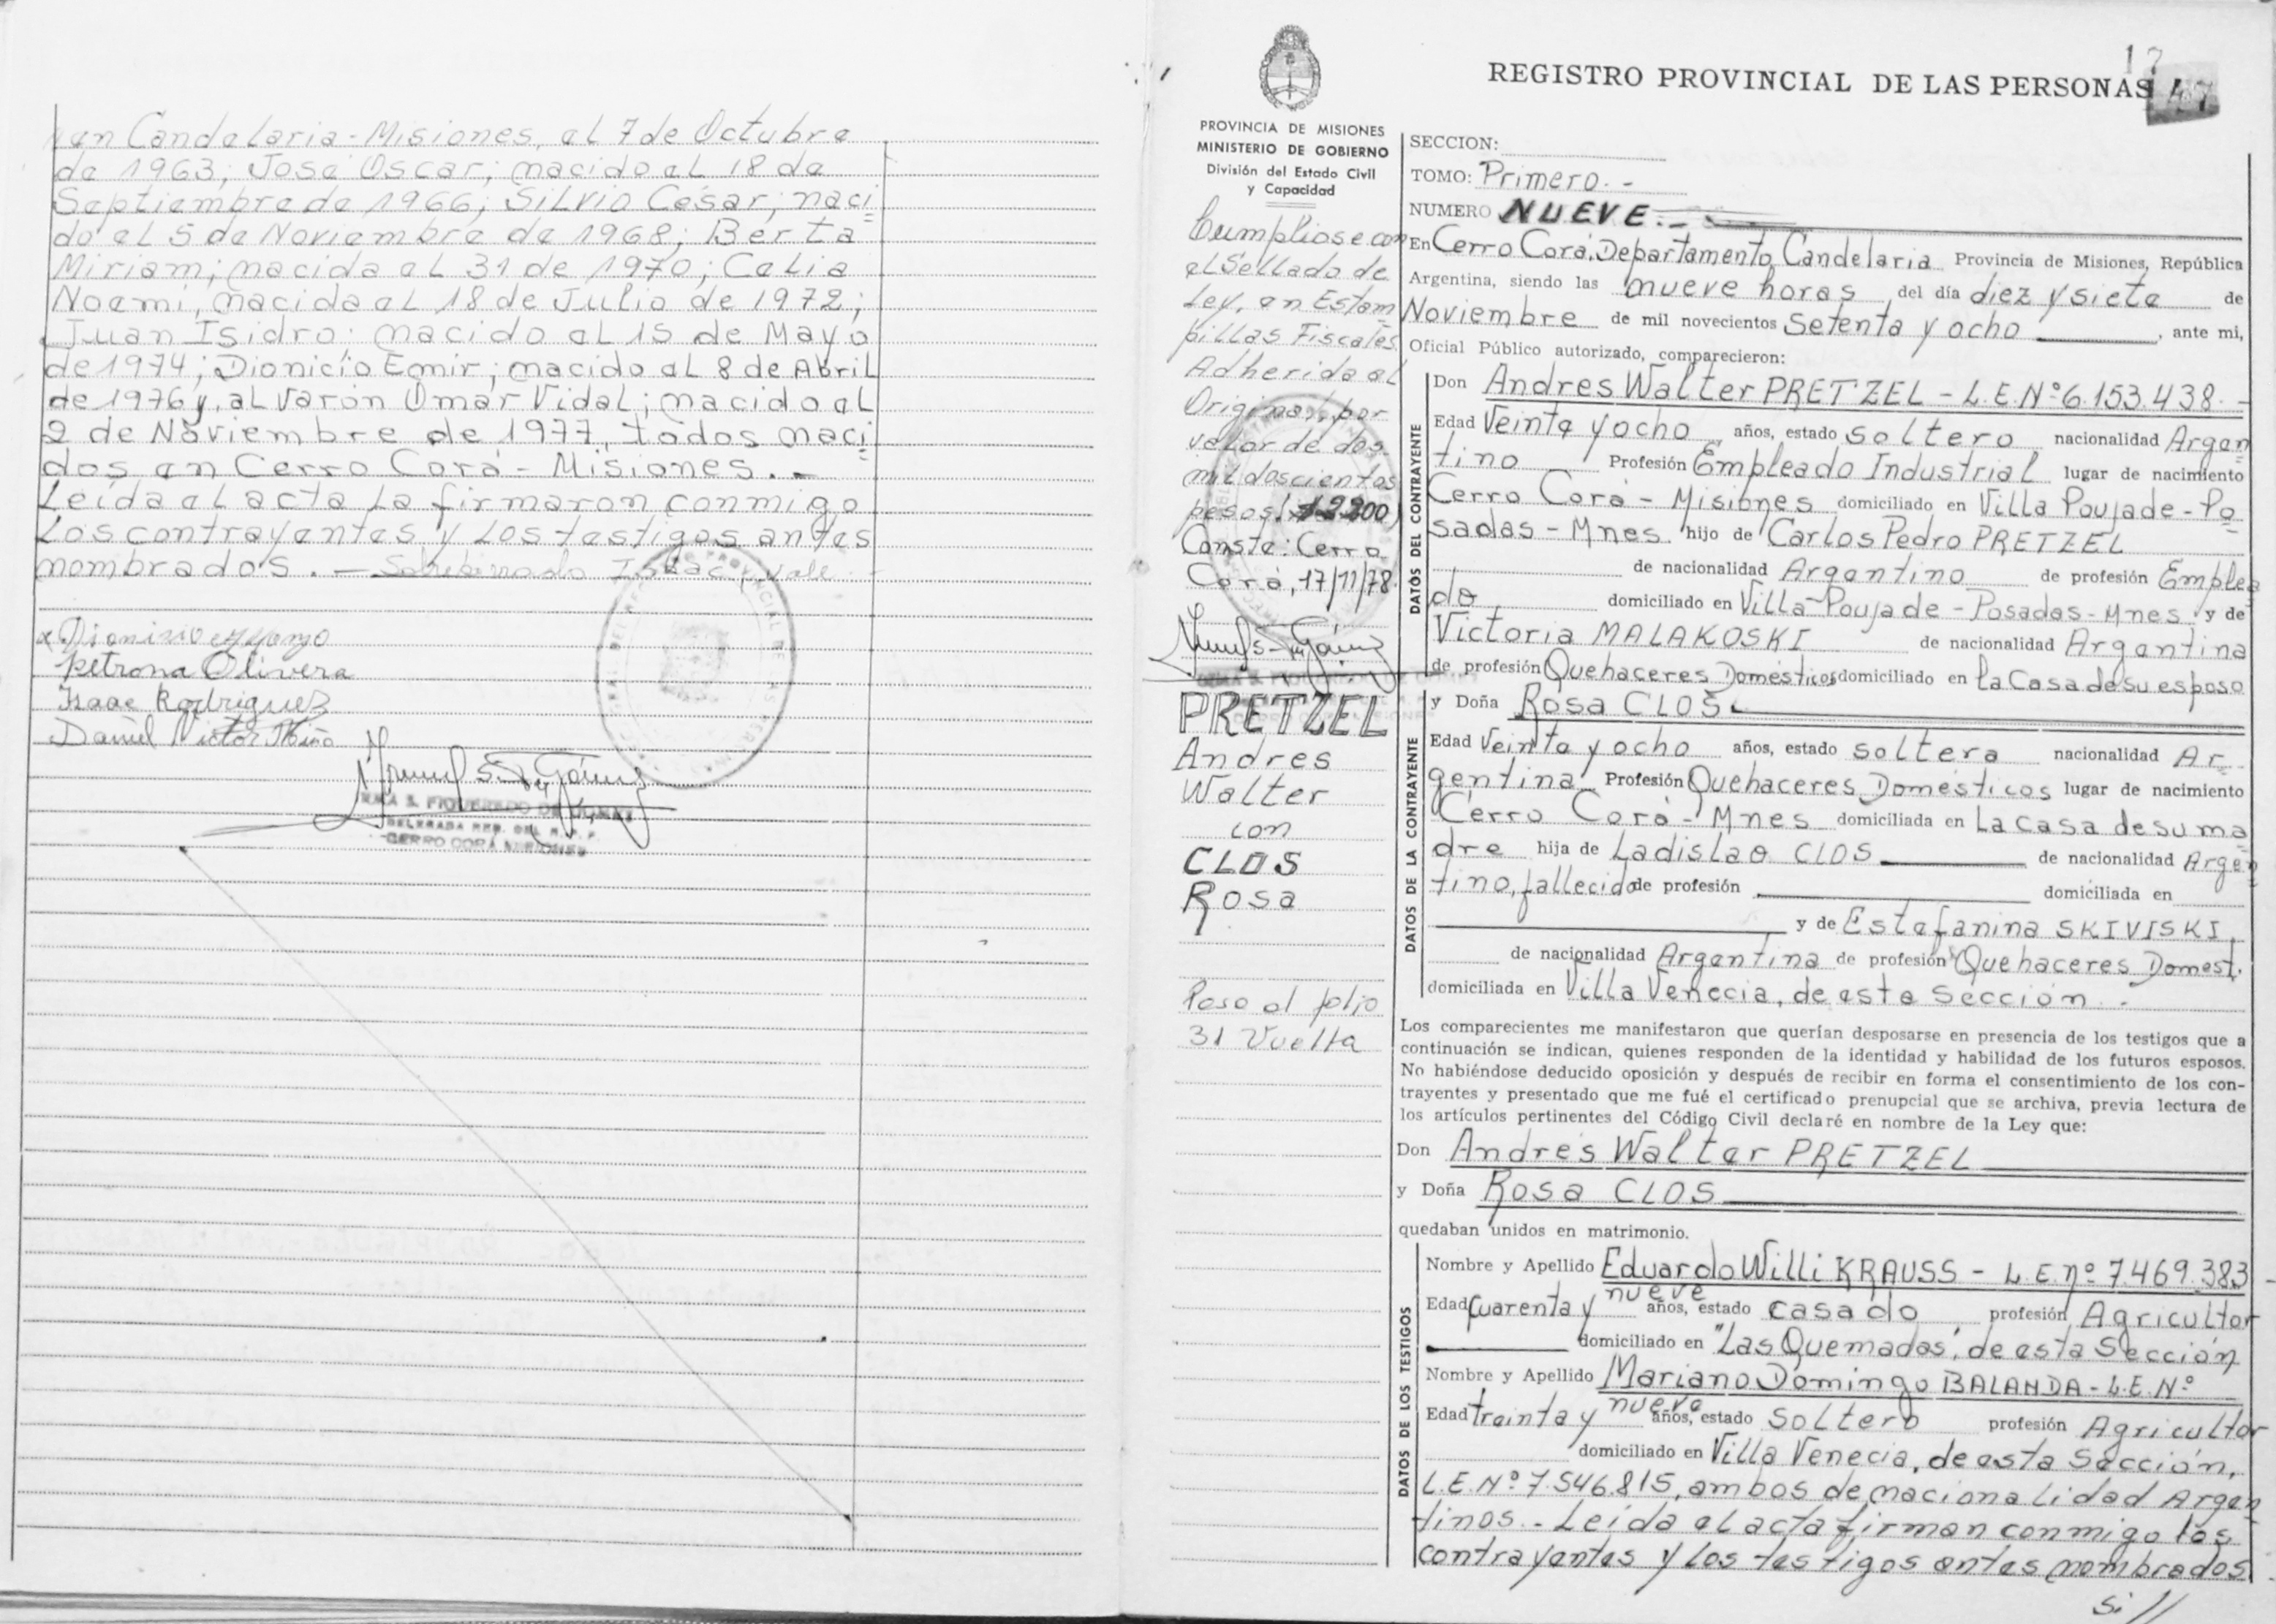 en Candelaria - Misiones, el 7 de Octubre
de 1963; José Oscar; nacido el 18 de
Septiembre de 1966; Silvio César; naci
do el 5 de Noviembre de 1968; Berta
Miriam; nacida el 31 de 1970; Celia
Noemí, nacida el 18 de Julio de 1972;
Juan Isidro: nacido el 15 de Mayo
de 1974; Dionicio Emir; nacido el 8 de Abril
de 1976 y, al varón Omar Vidal; nacido el
2 de Noviembre de 1977, todos naci
dos en Cerro Corá - Misiones. -
Leída el acta la firmaron conmigo
los contrayentes y los testigos antes
nombrados. - Sobrerraspado Isaac, vale.
Petrona Olivera
Isaac Rodriguez
Daniel Victor
CERRO CORÁ MISIONES
PROVINCIA DE MISIONES
MINISTERIO DE GOBIERNO
División del Estado Civil
y Capacidad
Cumpliose con
el Sellado de
Ley, en Estam
pillas Fiscales
Adherida al
Original, por
valor de dos
mil doscientos
pesos ($ 2200)
Conste: Cerro
Corá, 17/11/78
PRETZEL
Andres
Walter
con
CLOS
Rosa
Paso al folio
31 Vuelta
REGISTRO PROVINCIAL DE LAS PERSONAS
17
47
SECCION:
TOMO: Primero. -
NUMERO NUEVE. -
En Cerro Corá, Departamento Candelaria Provincia de Misiones, República
Argentina, siendo las nueve horas del día diez y siete de
Noviembre de mil novecientos Setenta y ocho, ante mi,
Oficial Público autorizado, comparecieron:
DATOS DEL CONTRAYENTE
Don Andres Walter PRETZEL - L.E. Nº 6.153.438. -
Edad Veinte y ocho, años, estado soltero nacionalidad Argen
tino Profesión Empleado Industrial lugar de nacimiento
Cerro Corá - Misiones domiciliado en Villa Poujade - Po
sadas - Mnes. hijo de Carlos Pedro PRETZEL
de nacionalidad Argentino de profesión Emplea
do domiciliado en Villa Poujade - Posadas - Mnes. y de
Victoria MALAKOSKI de nacionalidad Argentina
de profesión Quehaceres Domésticos domiciliado en la Casa de su esposo
DATOS DE LA CONTRAYENTE
y Doña Rosa CLOS
Edad Veinte y ocho años, estado soltera nacionalidad Ar
gentina Profesión Quehaceres Domésticos lugar de nacimiento
Cerro Corá - Mnes domiciliada en La Casa de su ma
dre hija de Ladislao CLOS de nacionalidad Argen
tino, fallecido de profesión domiciliada en
y de Estefanina SKIVISKI,
de nacionalidad Argentina de profesión Quehaceres Domest.
domiciliada en Villa Venecia, de esta Sección. -
Los comparecientes me manifestaron que querían desposarse en presencia de los testigos que a
continuación se indican, quienes responden de la identidad y habilidad de los futuros esposos.
No habiéndose deducido oposición y después de recibir en forma el consentimiento de los con-
trayentes y presentado que me fué el certificado prenupcial que se archiva, previa lectura de
los artículos pertinentes del Código Civil declaré en nombre de la Ley que:
Don Andrés Walter PRETZEL
y Doña Rosa CLOS
quedaban unidos en matrimonio.
DATOS DE LOS TESTIGOS
Nombre y Apellido Eduardo Willi KRAUSS - L.E. nº 7.469.383 -
Edad Cuarenta y nueve años, estado casado profesión Agricultor
domiciliado en "Las Quemadas", de esta Sección
Nombre y Apellido Mariano Domingo BALANDA - L.E. Nº
Edad treinta y nueve años, estado Soltero profesión Agricultor
domiciliado en Villa Venecia, de esta Sección,
L.E. Nº 7.546.815, ambos de nacionalidad Argen
tinos. - Leída el acta firman conmigo los
contrayentes y los testigos antes nombrados.